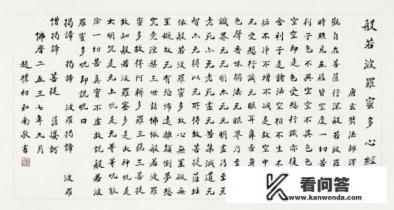 般若波羅蜜多心經
唐玄奘法師譯
觀自在菩薩行深般若波羅蜜多
時照見五蘊皆空度一切苦厄舍
利子色不異空空不異色色即是
空空即是色受想行識亦復如是
舍利子是諸法空相不生不滅不
垢不淨不增不減是故空中无色
无受想行識无眼耳鼻舌身意无
色聲香味觸法无眼界乃至无意
識界无无明亦无无明盡乃至无
老死亦无老死盡无苦集滅道无
智亦无得以无所得故菩提薩埵
依般若波羅蜜多故心无罣礙无
罣礙故无有恐怖遠離顛倒夢想
究竟涅槃三世諸佛依般若波羅
蜜多故得阿耨多羅三藐三菩提
故知般若波羅蜜多是大神咒是
大明咒是无上咒是无等等咒能
除一切苦真實不虛故說般若波
羅蜜多咒即說咒曰
揭諦揭諦 波羅揭諦 波羅
僧揭諦 菩提 薩婆訶
佛曆二五三七年九月
趙樸初和南敬書
看问答
www.kanwenda.com